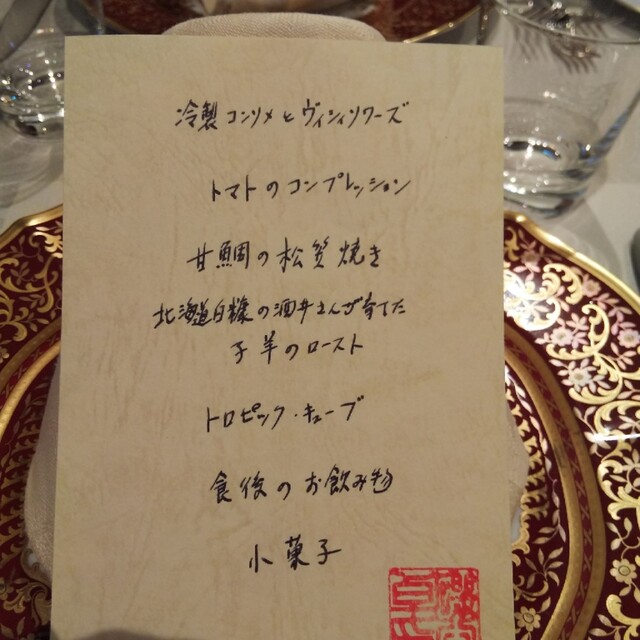 冷製コンソメとヴィシィソワーズ
トマトのコンプレッション
甘鯛の松笠焼き
北海道白糠の酒井さんが育てた
子羊のロースト
トロピック・キューブ
食後のお飲み物
小菓子